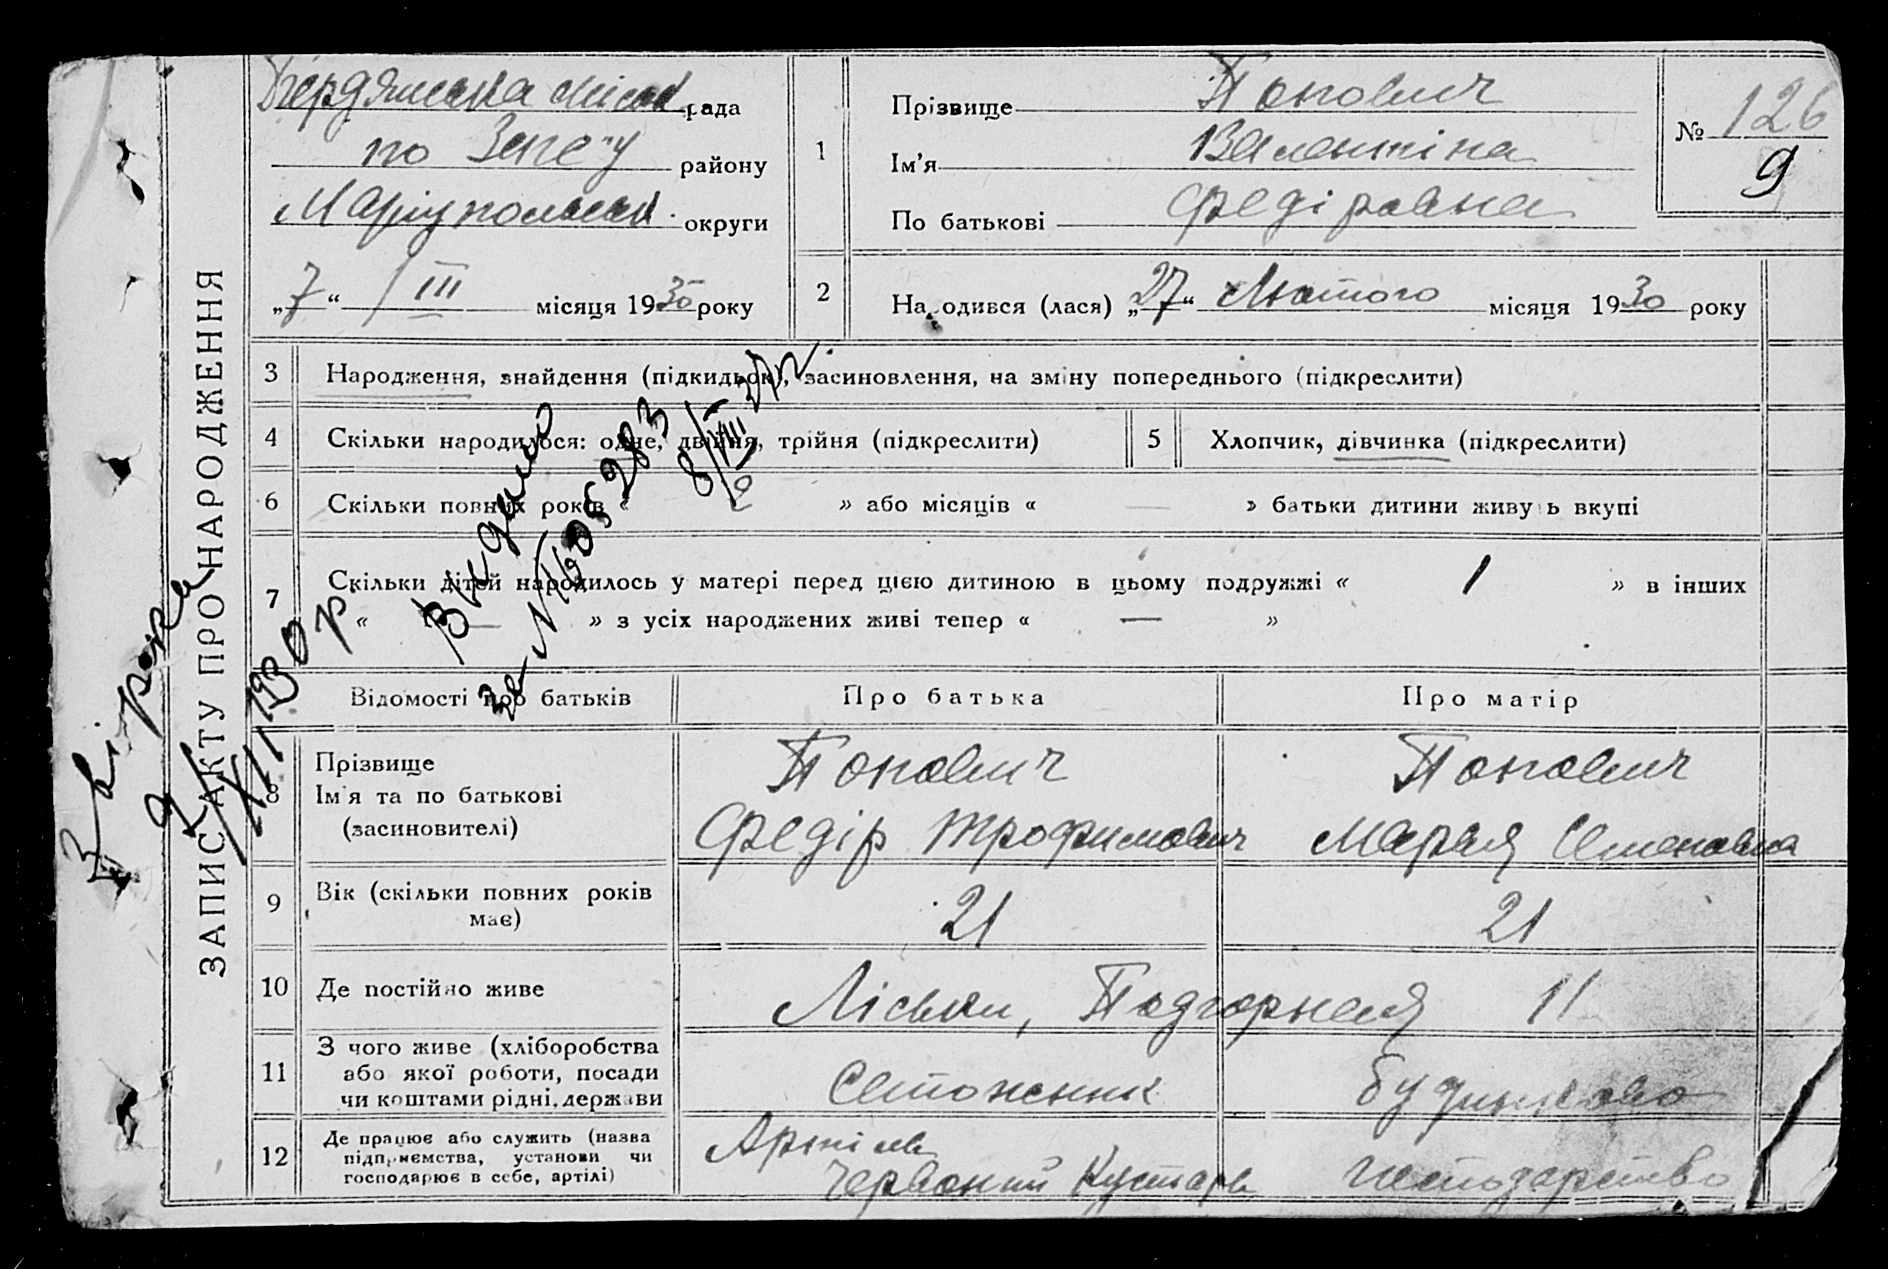 ЗАПИС АКТУ ПРО НАРОДЖЕННЯ
Бердянська міськ рада
по Загсу району
Маріупольськ. округи
„7“ / III місяця 1930 року
1
Прізвище Попович
Ім'я Валентіна
По батькові Федіровна
№ 126
9
2 Народився (лася) „27“ Лютого місяця 1930 року
3 Народження, знайдення (підкидьок), засиновлення, на зміну попереднього (підкреслити)
4 Скільки народилося: одне, двійня, трійня (підкреслити)
5 Хлопчик, дівчинка (підкреслити)
6 Скільки повних років « 2 » або місяців « — » батьки дитини живуть вкупі
7 Скільки дітей народилось у матері перед цією дитиною в цьому подружжі « 1 » в інших
« — » з усіх народжених живі тепер « — »
Видано
за № 605283
8/VIII
Звірена
9/XII 1930 р.
Відомості про батьків
Про батька
Про матір
8 Прізвище
Ім'я та по батькові
(засиновителі)
Попович
Федір Трофимович
Попович
Марья Семеновна
9 Вік (скільки повних років має)
21
21
10 Де постійно живе
Ліски, Подгорная 11
11 З чого живе (хліборобства
або якої роботи, посади
чи коштами рідні, держави
Сапожник
будинково
12 Де працює або служить (назва
підприємства, установи чи
господарює в себе, артілі)
Артіль
Червоний Кустарь
господарство